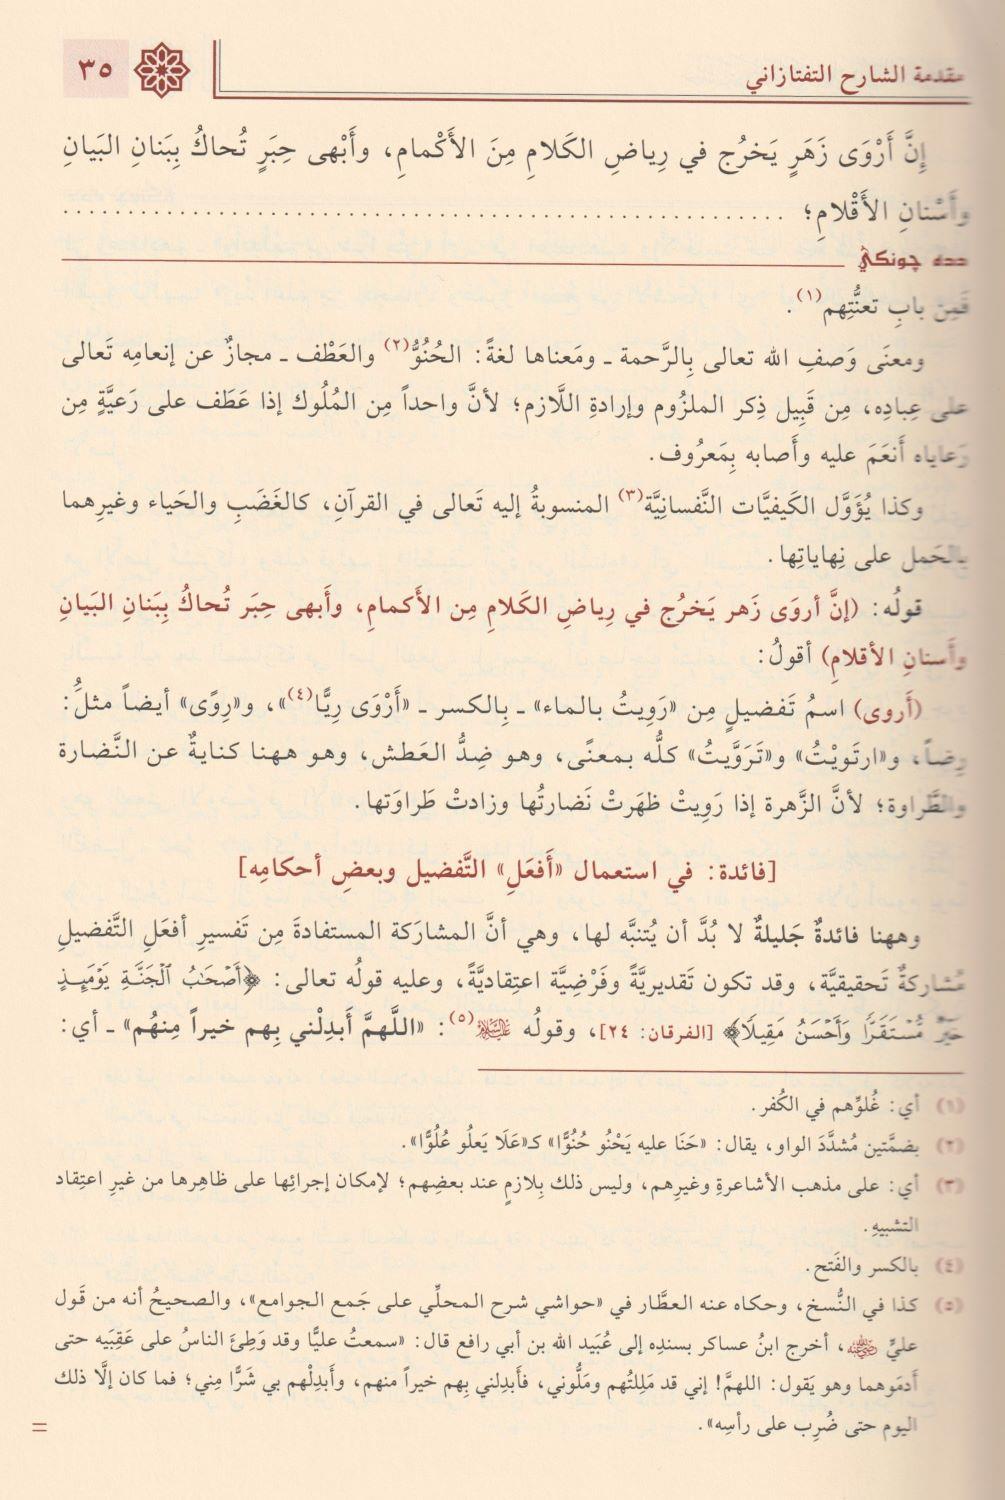 مقدمة الشارح التفتازاني
٣٥
إِنَّ أَرْوَى زَهَرٍ يَخرُج في رِياضِ الكَلامِ مِنَ الأَكْمامِ، وأَبْهى حِبَرٍ تُحاكُ بِبَنانِ البَيانِ
وأَسْنانِ الأَقْلامِ؛ ........................................................
دده جونكي
فَمِنْ بابِ تعنُّتِهم(١).
ومعنَى وَصفِ الله تعالى بِالرَّحمة ـ ومَعناها لغةً: الحُنُوُّ(٢) والعَطْف ـ مجازٌ عن إنعامِه تَعالى
على عِبادِه، مِن قَبِيل ذِكر الملزُوم وإرادةِ اللَّازم؛ لأنَّ واحداً مِن المُلُوك إذا عَطَف على رَعيَّةٍ مِن
رَعاياه أَنعَمَ عليه وأَصابه بِمَعرُوف.
وكذا يُؤَوَّل الكَيفيَّات النَّفسانِيَّة(٣) المنسوبةُ إليه تَعالى في القرآنِ، كالغَضَبِ والحَياء وغيرِهما
بالحَمل على نِهاياتِها.
قولُه: (إنَّ أروَى زَهر يَخرُج في رِياضِ الكَلامِ مِن الأَكمامِ، وأَبهى حِبَر تُحاكُ بِبَنانِ البَيانِ
وأَسنانِ الأقلامِ) أقولُ:
(أَروى) اسمُ تَفضيلٍ مِن «رَوِيتُ بالماء» ـ بِالكسر ـ «أَرْوَى رِيًّا(٤)»، و«رِوًى» أيضاً مثلُ:
رِضاً، و«ارتَويْتُ» و«تَرَوَّيتُ» كلُّه بمعنًى، وهو ضِدُّ العَطش، وهو ههنا كنايةٌ عن النَّضارة
والطَّراوة؛ لأنَّ الزَّهرة إذا رَوِيتْ ظهَرَتْ نَضارتُها وزادتْ طَراوَتها.
[فائدة: في استعمال «أَفعَلِ» التَّفضيل وبعضِ أحكامِه]
وههنا فائدةٌ جَليلةٌ لا بُدَّ أن يُتنبَّه لها، وهي أنَّ المشارَكة المستفادةَ مِن تَفسيرِ أفعَلِ التَّفضيلِ
مُشاركةٌ تَحقيقيَّة، وقد تكون تَقديريَّةً وفَرْضِيَّة اعتِقاديَّةً، وعليه قولُه تعالى: ﴿أَصْحَٰبُ ٱلْجَنَّةِ يَوْمَئِذٍ
خَيْرٌ مُّسْتَقَرًّا وَأَحْسَنُ مَقِيلًا﴾ [الفرقان: ٢٤]، وقولُه عليه السلام(٥): «اللَّهمَّ أَبدِلْني بِهم خيراً مِنهُم» ـ أي:
(١) أي: غُلوِّهم في الكُفر.
(٢) بضمَّتين مُشدَّدَ الواو، يقال: «حَنَا عليه يَحْنُو حُنُوًّا» كـ«عَلَا يَعلُو عُلُوًّا».
(٣) أي: على مذهب الأشاعرةِ وغيرِهم، وليس ذلك بِلازمٍ عند بعضِهم؛ لإمكان إجرائِها على ظاهِرها من غيرِ اعتِقاد
التشبيهِ.
(٤) بالكسر والفَتح.
(٥) كذا في النُّسخ، وحكاه عنه العطَّار في «حواشي شرح المحلِّي على جَمع الجوامع»، والصحيحُ أنه من قَول
عليٍّ رضي الله عنه، أخرج ابنُ عساكر بسندِه إلى عُبَيد الله بن أبي رافع قال: «سمعتُ عليًّا وقد وَطِئَ الناسُ على عَقِبَيه حتى
أَدمَوهما وهو يَقول: اللهمَّ! إني قد مَلِلتُهم ومَلُّوني، فأَبدِلني بِهم خيراً منهم، وأَبدِلْهم بي شَرًّا مِني؛ فما كان إلَّا ذلك
اليوم حتى ضُرِب على رأسِه».
=